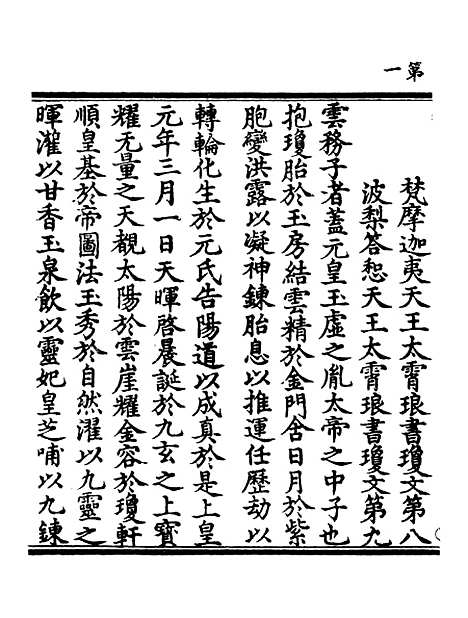 第一
梵摩迦夷天王太霄琅書瓊文第八
波梨答惒天王太霄琅書瓊文第九
雲務子者蓋元皇玉虛之胤太帝之中子也
抱瓊胎於玉房結雲精於金門含日月於紫
胞變洪露以凝神鍊胎息以推運任歷劫以
轉輪化生於元氏告陽道以成真於是上皇
元年三月一日天暉啓晨誕於九玄之上寳
耀无量之天覩太陽於雲崖耀金容於瓊軒
順皇基於帝圖法玉秀於自然濯以九靈之
暉灌以甘香玉泉飲以靈妃皇芝哺以九鍊